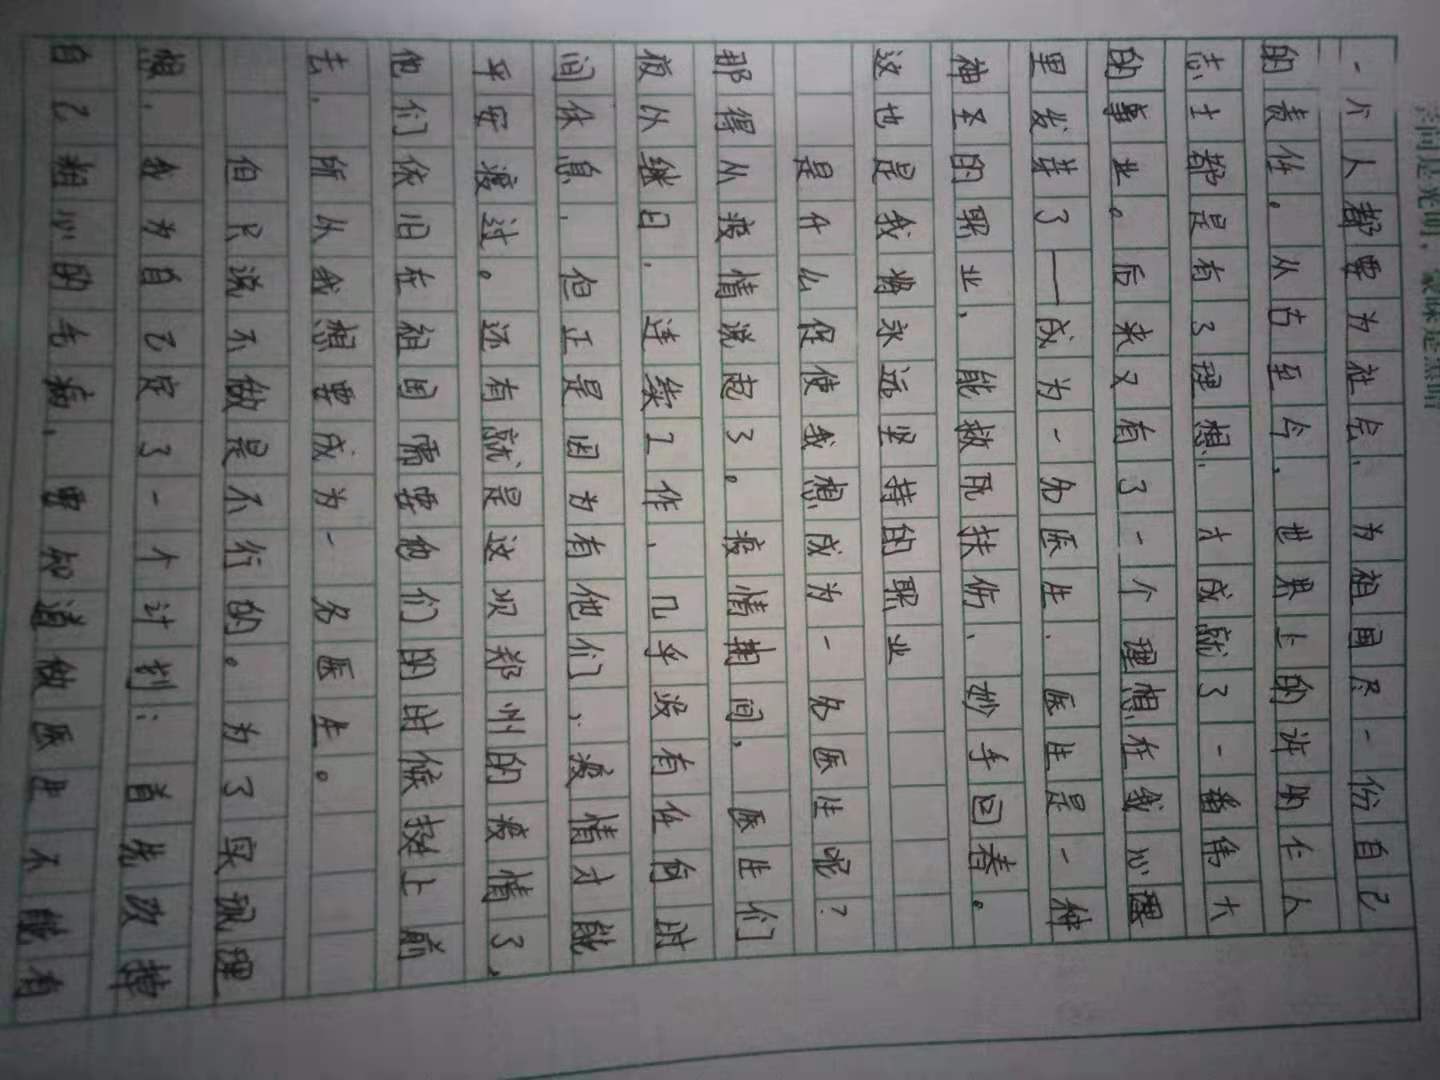 一个人都要为社会，为祖国尽一份自己
的责任。从古至今，世界上的许多仁人
志士都是有了理想，才成就了一番伟大
的事业。后来又有了一个理想在我心理
里发芽了——成为一名医生，医生是一种
神圣的职业，能救死扶伤、妙手回春。
这也是我将永远坚持的职业
是什么促使我想成为一名医生呢？
那得从疫情说起了。疫情期间，医生们
夜以继日，连续工作、几乎没有任何时
间休息，但正是因为有他们、疫情才能
平安渡过。还有就是这次郑州的疫情了，
他们依旧在祖国需要他们的时候挺上前
去，所以我想要成为一名医生。
但只说不做是不行的。为了实现理
想，我为自己定了一个计划：首先改掉
自己粗心的毛病，要知道做医生不能有